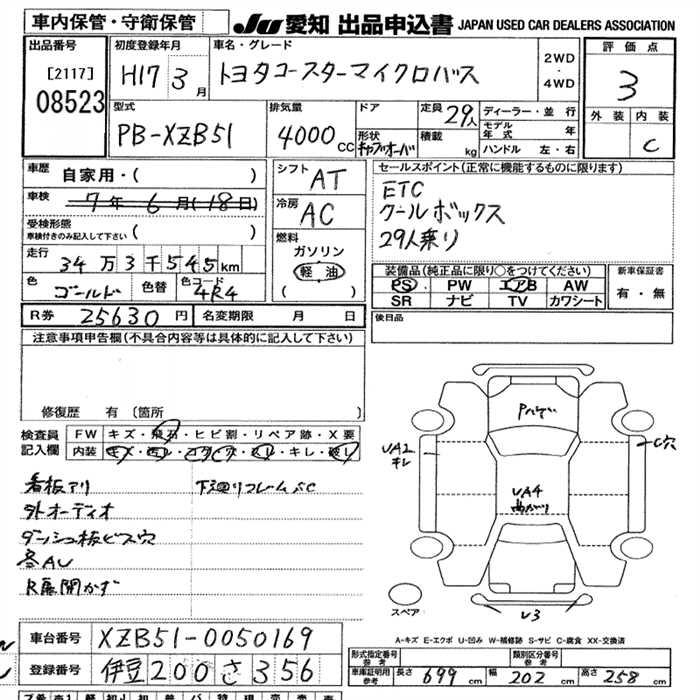 車内保管・守衛保管
JU 愛知 出品申込書 JAPAN USED CAR DEALERS ASSOCIATION
出品番号
[2117]
08523
初度登録年月
H17 3月
車名・グレード
トヨタコースターマイクロバス
2WD
・
4WD
評価点
3
外装 内装
C
型式
PB-XZB51
排気量
4000 CC
ドア
形状
定員 29人
積載 kg
ディーラー・並行
モデル年式 年
ハンドル 左・右
車歴
自家用・( )
車検
7年6月(18日)
受検形態
車検付きのみ記入して下さい ( )
走行
34万3千545km
色
ゴールド
色替
色コード
4R4
シフト
AT
冷房
AC
燃料
ガソリン
軽油
( )
セールスポイント(正常に機能するものに限ります)
ETC
クールボックス
29人乗り
装備品(純正品に限り○をつけてください)
PS PW エアB AW
SR ナビ TV カワシート
新車保証書
有・無
R券 25630円
名変期限 月 日
後日品
注意事項申告欄(不具合内容等は具体的に記入して下さい)
修復歴 有 (箇所
検査員記入欄
FW キズ・飛石・ヒビ割・リペア跡・X要
内装 キズ・汚レ・コゲ・穴・スレ・キレ・破レ
看板アリ
下廻りフレームSC
外オーディオ
ダッシュ板ビス穴
各AU
R扉開かず
UA2
キレ
UA4
曲がり
C穴
U3
スペア
A-キズ E-エクボ U-凹み W-補修跡 S-サビ C-腐食 XX-交換済
車台番号 XZB51-0050169
登録番号 伊豆200さ356
形式指定番号 参考
類別区分番号 参考
車庫証明用 参考
長さ 699 (cm)
幅 202 (cm)
高さ 258 (cm)